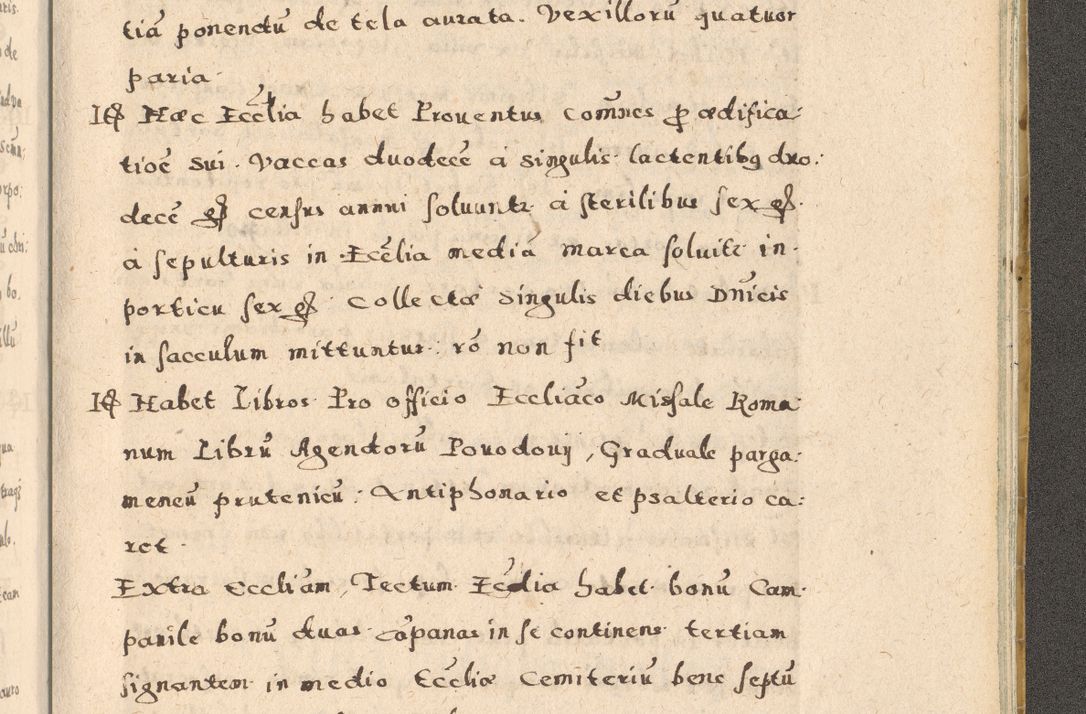 tiā ponendū de tela aurata. Vexillorū quatuor
paria.
Haec Eccl̃ia habet Prouentus com̃nes p̱ aedifica:
tioē sui. Vaccas duodecē a singulis lactentibꝫ duo:
decē gſ census annui soluuntr à sterilibus sex gſ.
à sepulturis in Eccl̃ia mediā marca soluitr in
porticu sex gſ. Collectae singulis diebus Dn̄icis
in sacculum mittuntur. rō non fit
Habet Libros Pro officio Eccliāco Missale Roma
num Librū Agendorū Pouodouij, Graduale parga:
meneū prutenicū: Antiphonario et psalterio ca:
ret.
Extra Eccliam, Tectum Eccl̃ia habet bonū Cam
panile bonū duas cāpanas in se continens tertiam
signantem in medio Eccl̃iae Cemiteriū bene septū